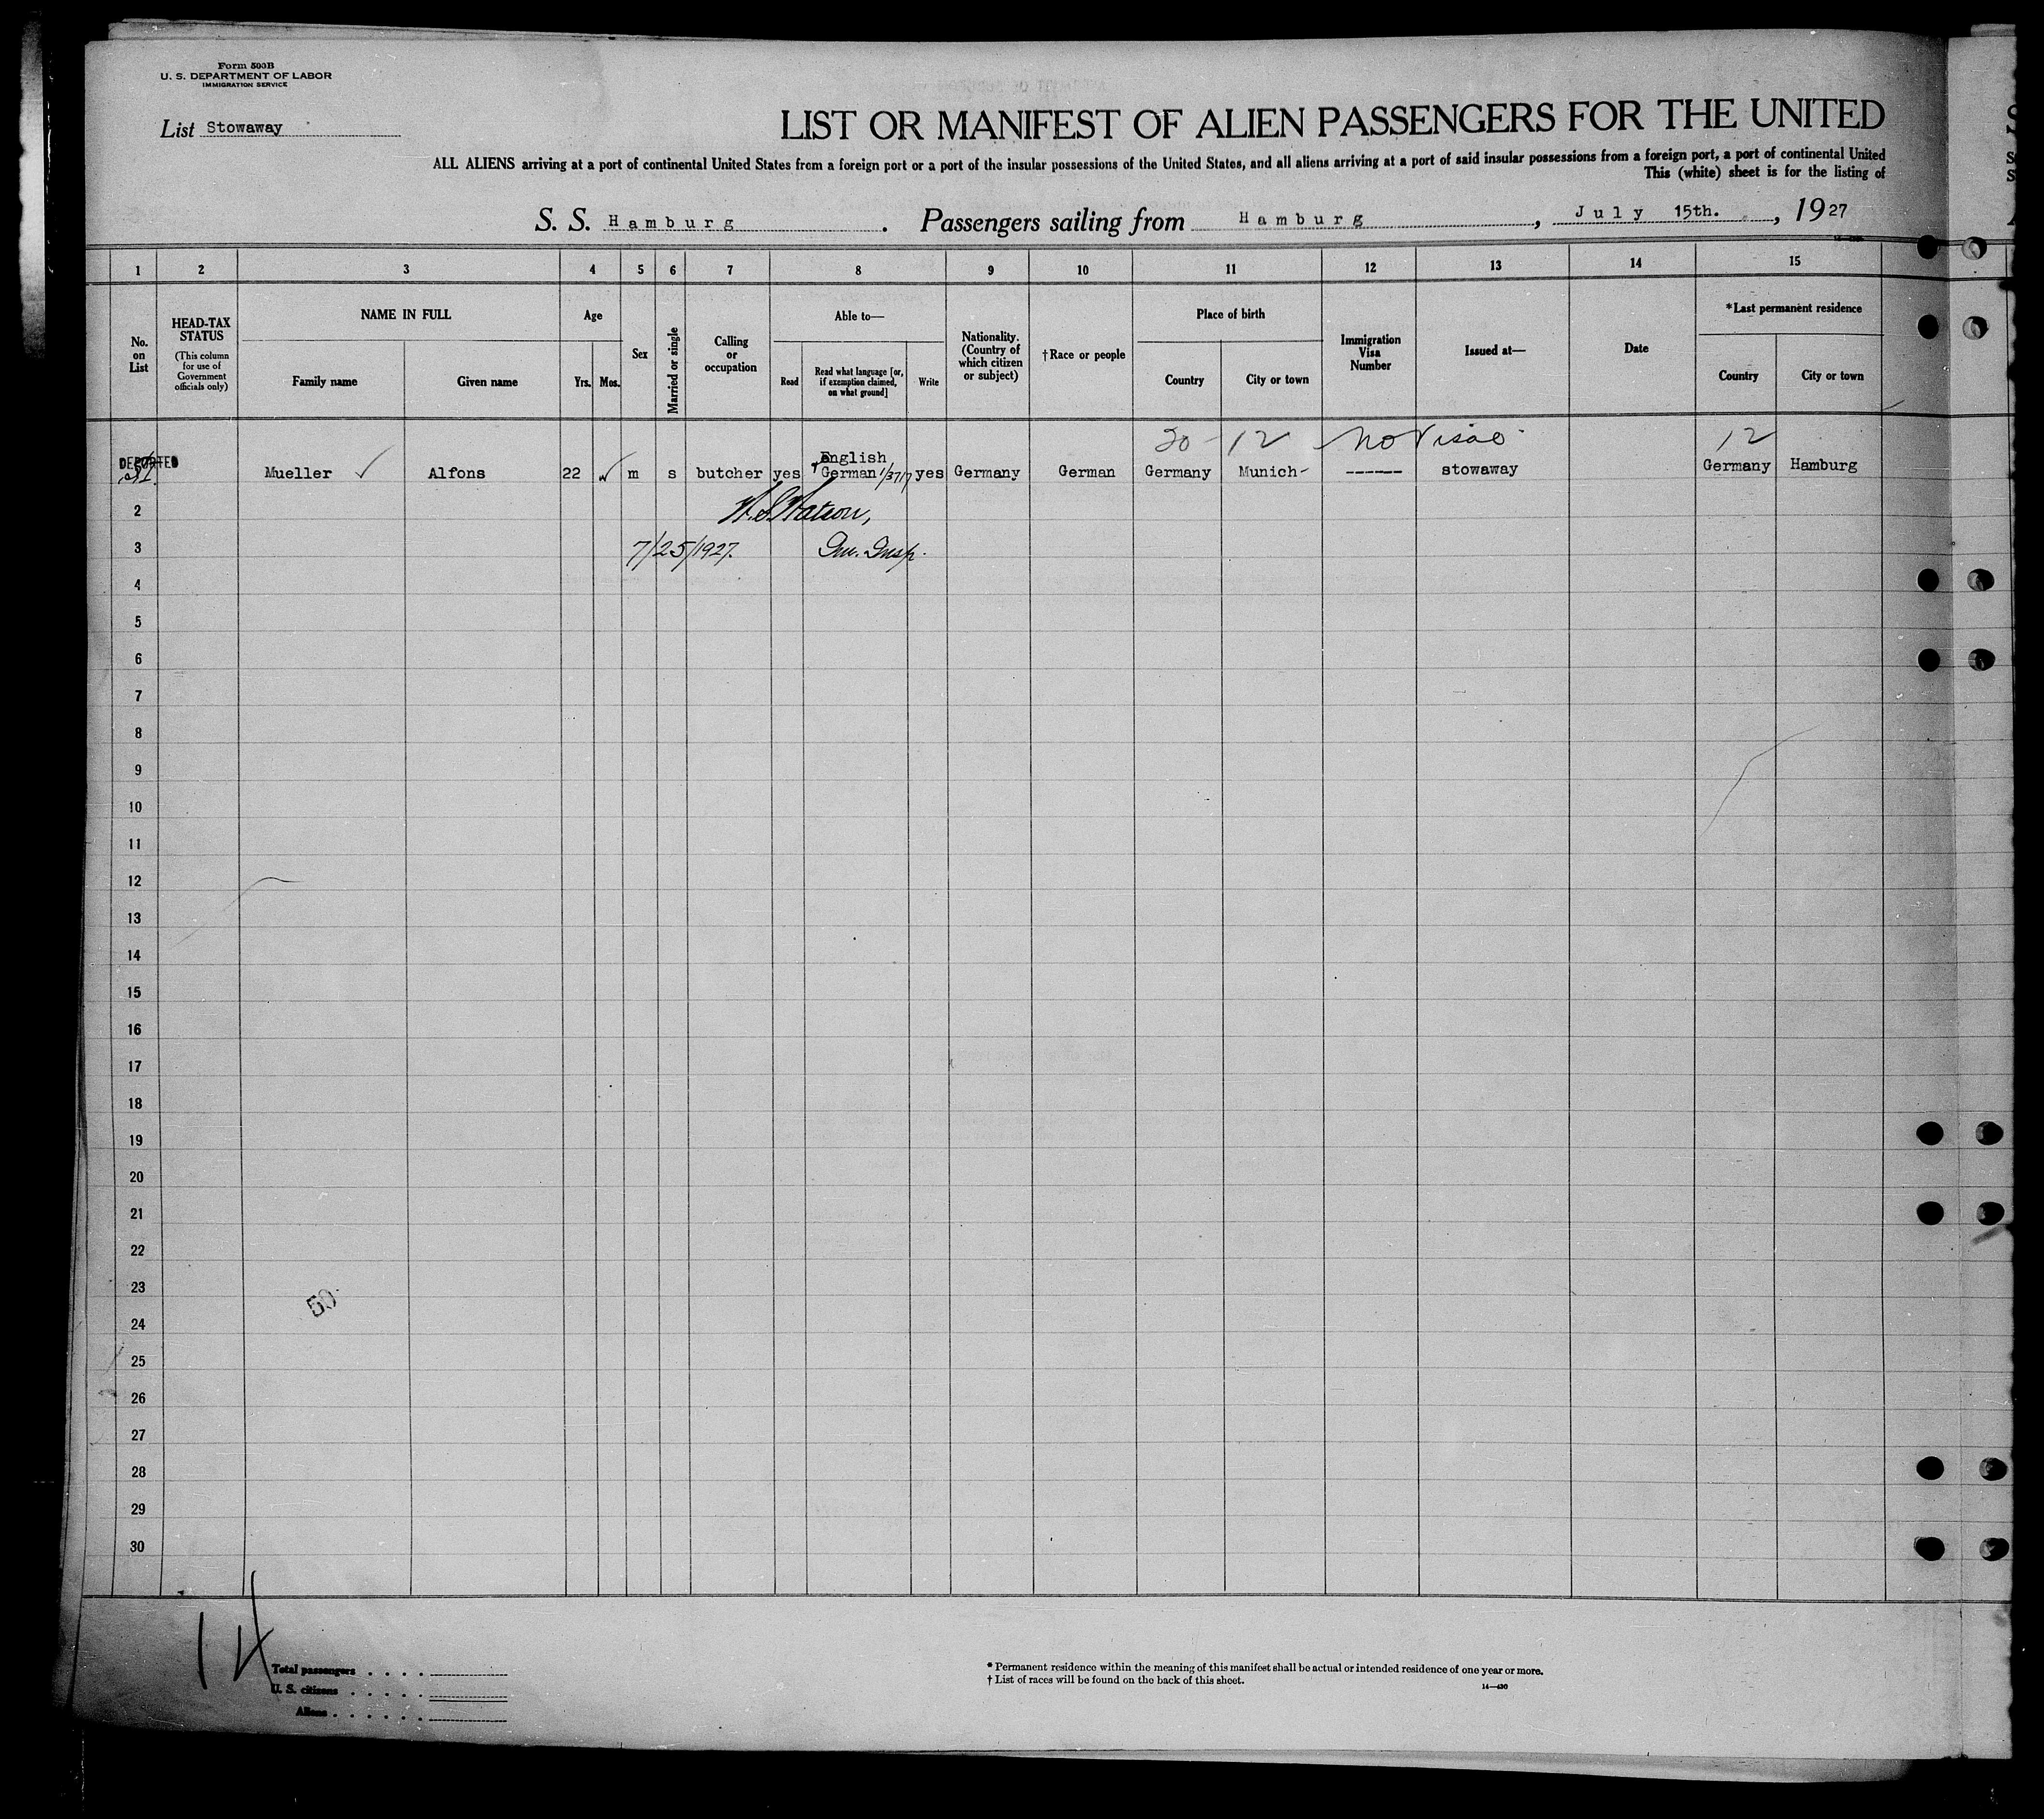 Form 500B
U. S. DEPARTMENT OF LABOR
IMMIGRATION SERVICE
List Stowaway
LIST OR MANIFEST OF ALIEN PASSENGERS FOR THE UNITED
ALL ALIENS arriving at a port of continental United States from a foreign port or a port of the insular possessions of the United States, and all aliens arriving at a port of said insular possessions from a foreign port, a port of continental United
This (white) sheet is for the listing of
S. S. Hamburg. Passengers sailing from Hamburg, July 15th., 1927
1 2 3 4 5 6 7 8 9 10 11 12 13 14 15
No. on List
HEAD-TAX STATUS
(This column for use of Government officials only)
NAME IN FULL
Family name
Given name
Age
Yrs. Mos.
Sex
Married or single
Calling or occupation
Able to—
Read
Read what language [or, if exemption claimed, on what ground]
Write
Nationality. (Country of which citizen or subject)
†Race or people
Place of birth
Country
City or town
Immigration Visa Number
Issued at—
Date
*Last permanent residence
Country
City or town
20 - 12 No Visae 12
DEPORTED
English
Mueller ✓ Alfons 22 ✓ m s butcher yes German yes Germany German Germany Munich - ------ stowaway Germany Hamburg
2
W. S. Watson,
3
7/25/1927. Im. Insp.
4
5
6
7
8
9
10
11
12
13
14
15
16
17
18
19
20
21
22
23
50
24
25
26
27
28
29
30
14
Total passengers . . . .
U. S. citizens . . . . .
Aliens . . . . . .
* Permanent residence within the meaning of this manifest shall be actual or intended residence of one year or more.
† List of races will be found on the back of this sheet.
14—430